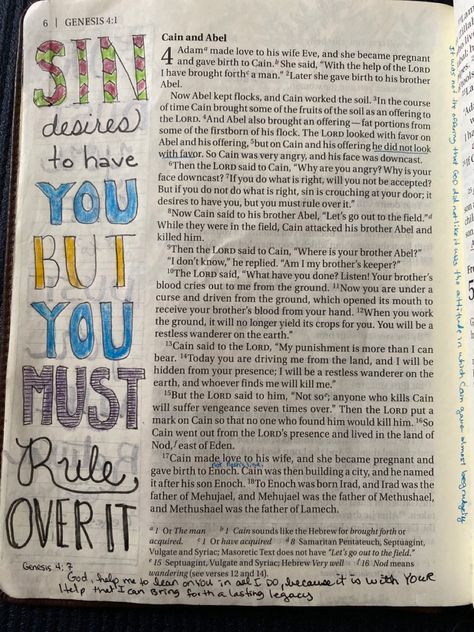 6 | GENESIS 4:1
SIN
desires
to have
YOU
BUT
YOU
MUST
Rule,
OVER IT
Genesis 4:7
Cain and Abel
4 Adamᵃ made love to his wife Eve, and she became pregnant
and gave birth to Cain.ᵇ She said, “With the help of the LORD
I have brought forthᶜ a man.” ²Later she gave birth to his brother
Abel.
Now Abel kept flocks, and Cain worked the soil. ³In the course
of time Cain brought some of the fruits of the soil as an offering to
the LORD. ⁴And Abel also brought an offering—fat portions from
some of the firstborn of his flock. The LORD looked with favor on
Abel and his offering, ⁵but on Cain and his offering he did not look
with favor. So Cain was very angry, and his face was downcast.
⁶Then the LORD said to Cain, “Why are you angry? Why is your
face downcast? ⁷If you do what is right, will you not be accepted?
But if you do not do what is right, sin is crouching at your door; it
desires to have you, but you must rule over it.”
⁸Now Cain said to his brother Abel, “Let’s go out to the field.”ᵈ
While they were in the field, Cain attacked his brother Abel and
killed him.
⁹Then the LORD said to Cain, “Where is your brother Abel?”
“I don’t know,” he replied. “Am I my brother’s keeper?”
¹⁰The LORD said, “What have you done? Listen! Your brother’s
blood cries out to me from the ground. ¹¹Now you are under a
curse and driven from the ground, which opened its mouth to
receive your brother’s blood from your hand. ¹²When you work
the ground, it will no longer yield its crops for you. You will be a
restless wanderer on the earth.”
¹³Cain said to the LORD, “My punishment is more than I can
bear. ¹⁴Today you are driving me from the land, and I will be
hidden from your presence; I will be a restless wanderer on the
earth, and whoever finds me will kill me.”
¹⁵But the LORD said to him, “Not soᵉ; anyone who kills Cain
will suffer vengeance seven times over.” Then the LORD put a
mark on Cain so that no one who found him would kill him. ¹⁶So
Cain went out from the LORD’s presence and lived in the land of
Nod,ᶠ east of Eden.
¹⁷Cain made love to his wife, and she became pregnant and
gave birth to Enoch. Cain was then building a city, and he named
it after his son Enoch. ¹⁸To Enoch was born Irad, and Irad was the
father of Mehujael, and Mehujael was the father of Methushael,
and Methushael was the father of Lamech.
ᵃ 1 Or The man ᵇ 1 Cain sounds like the Hebrew for brought forth or
acquired. ᶜ 1 Or have acquired ᵈ 8 Samaritan Pentateuch, Septuagint,
Vulgate and Syriac; Masoretic Text does not have “Let’s go out to the field.”
ᵉ 15 Septuagint, Vulgate and Syriac; Hebrew Very well ᶠ 16 Nod means
wandering (see verses 12 and 14).
God, help me to lean on you in all I do, because it is with your
help that I can bring forth a lasting legacy
It was not the offering that God did not like it was the attitude in which Cain gave